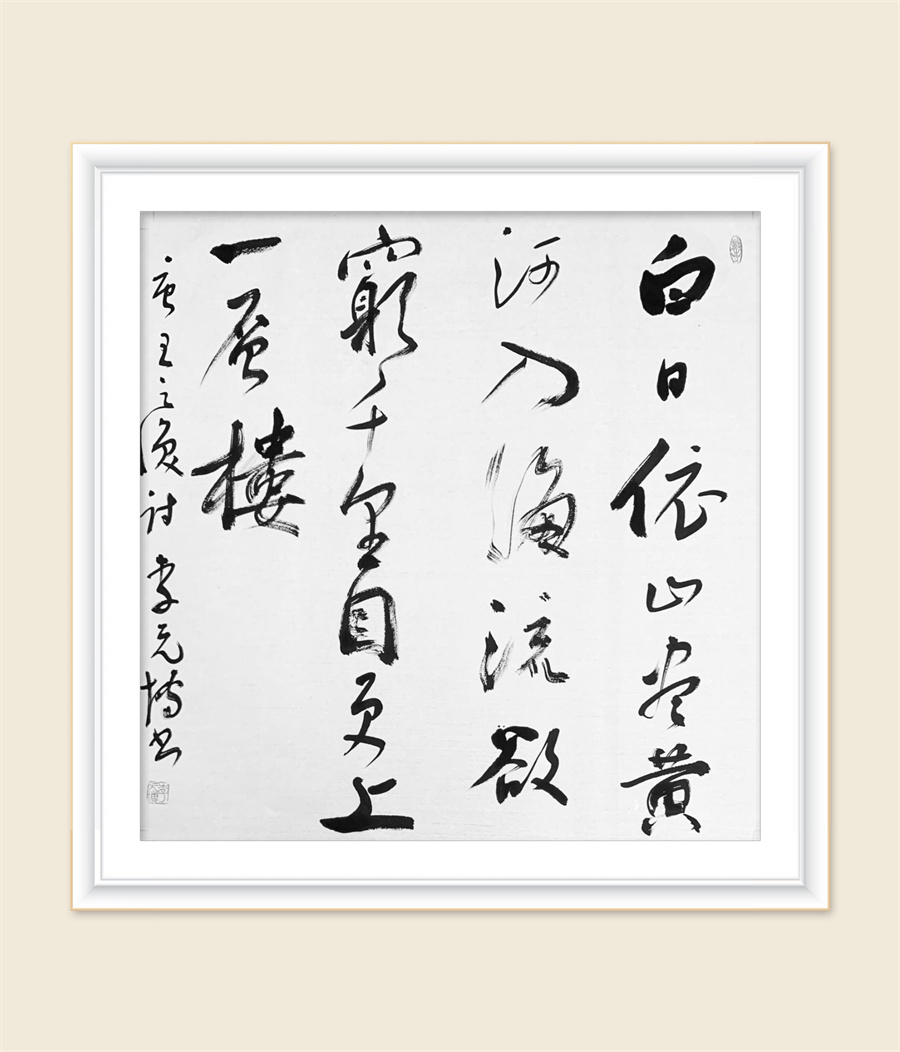 白日依山尽黄
河入海流欲
窮千里目更上
一層樓
唐王之涣诗 李元博书